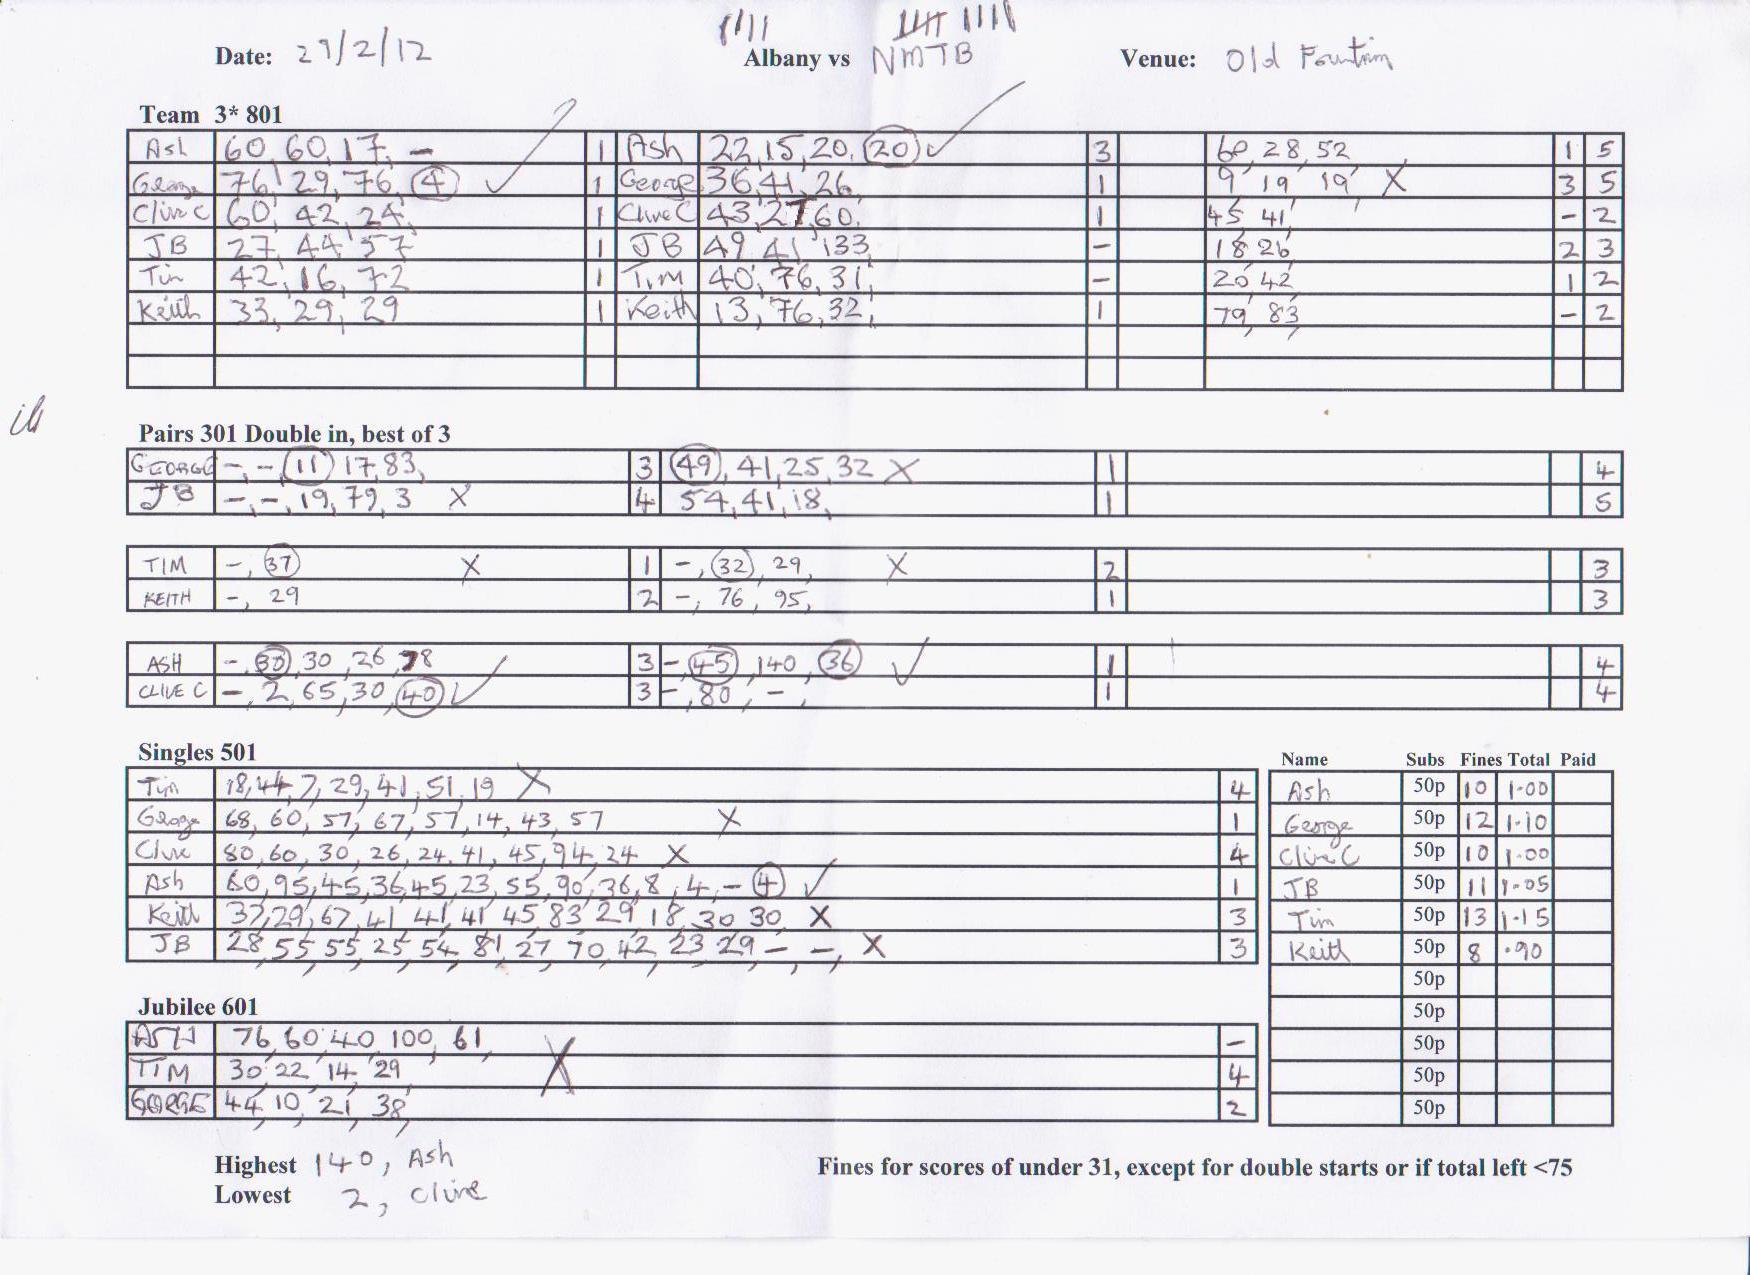 Date: 29/2/12 Albany vs NMTB Venue: Old Fountain
Team 3* 801
Ash 60, 60, 17, – 1 Ash 22, 15, 20, 20 ✓ 3 60, 28, 52 1 5
George 76, 29, 76, 4 ✓ 1 George 36, 41, 26, 1 9, 19, 19, X 3 5
Clive C 60, 42, 24, 1 Clive C 43, 27, 60, 1 45, 41, – 2
JB 27, 44, 57 1 JB 49, 41, 133, – 18, 26, 2 3
Tim 42, 16, 72 1 Tim 40, 76, 31, – 20, 42, 1 2
Keith 33, 29, 29 1 Keith 13, 76, 32, 1 79, 83, – 2
Pairs 301 Double in, best of 3
GEORGE –, –, 11, 17, 83, 3 49, 41, 25, 32 X 1 4
JB –, –, 19, 79, 3 X 4 54, 41, 18, 1 5
TIM –, 37 X 1 –, 32, 29, X 2 3
KEITH –, 29 2 –, 76, 95, 1 3
ASH –, 30, 26, 3 –, 45, 140, 36 ✓ 1 4
CLIVE C –, 2, 65, 30, 40 ✓ 3 –, 80, –, 1 4
Singles 501
Tim 18, 44, 7, 29, 41, 51, 19 X 4
George 68, 60, 57, 67, 57, 14, 43, 57 X 1
Clive 80, 60, 30, 26, 24, 41, 45, 94, 24 X 4
Ash 60, 95, 45, 36, 45, 23, 55, 90, 36, 8, 4, – 4 ✓ 1
Keith 37, 29, 67, 41, 41, 41, 45, 83, 29, 18, 30, 30, X 3
JB 28, 55, 55, 25, 54, 81, 27, 70, 42, 23, 29, –, –, X 3
Name Subs Fines Total Paid
Ash 50p 10 1·00
George 50p 12 1·10
Clive C 50p 10 1·00
JB 50p 11 1·05
Tim 50p 13 1·15
Keith 50p 8 ·90
50p
50p
50p
50p
50p
Jubilee 601
ASH 76, 60, 40, 100, 61, –
TIM 30, 22, 14, 29, X 4
GORGE 44, 10, 21, 38, 2
Highest 140, Ash
Lowest 2, Clive
Fines for scores of under 31, except for double starts or if total left <75